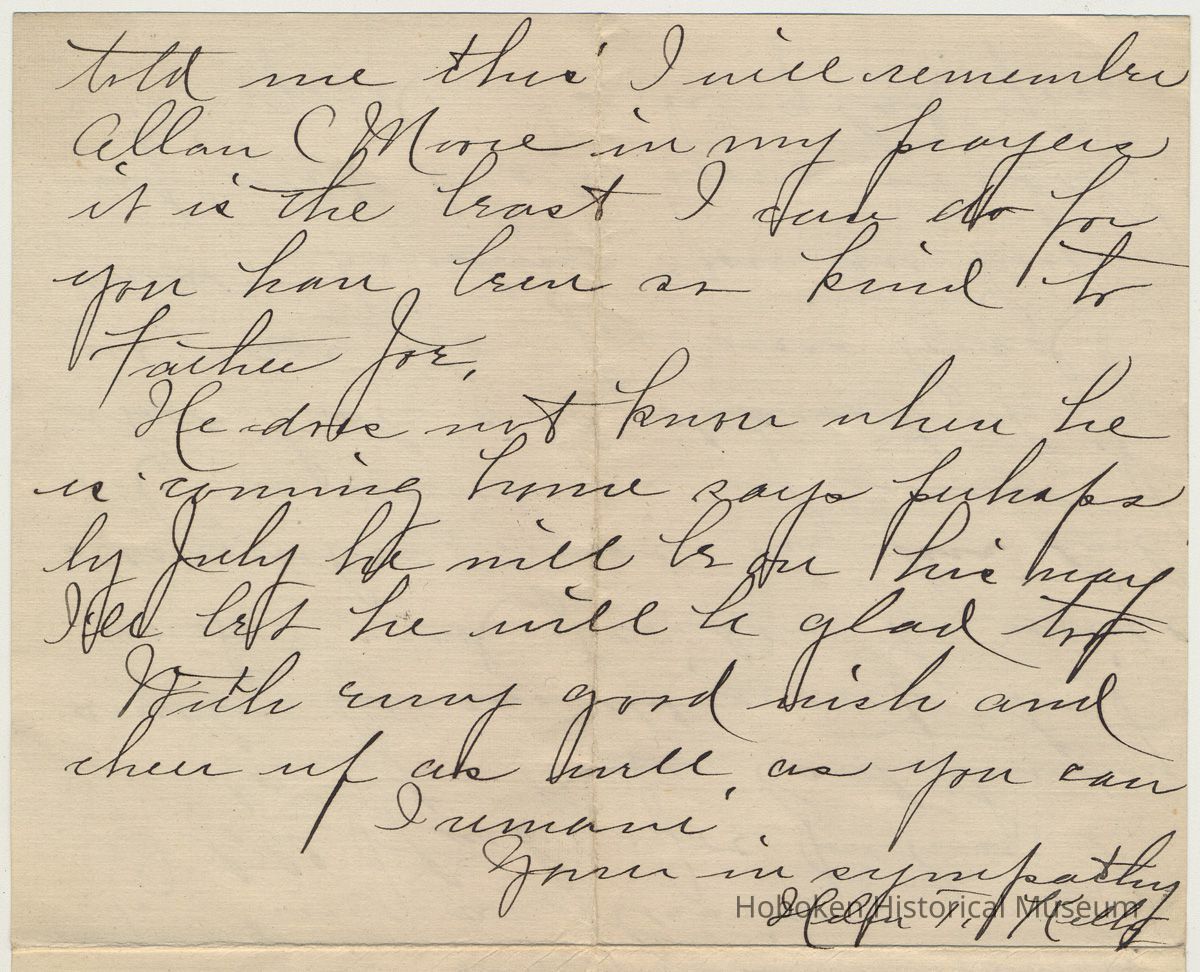 told me this I will remember
Allan C Moore in my prayers
it is the least I can do for
you have been so kind to
Father Joe,
He does not know when he
is coming home says perhaps
by July he will be on his way
I'll bet he will be glad too
With every good wish and
cheer up as well as you can
I remain,
Yours in sympathy
Helen T. Kelly
Hoboken Historical Museum